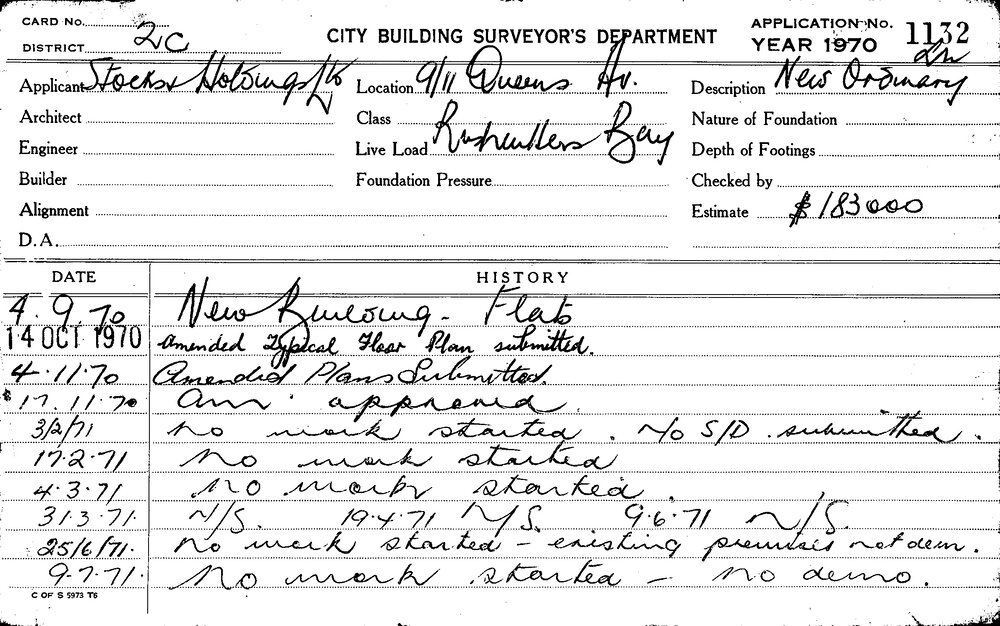 CARD No. 
DISTRICT 2C
CITY BUILDING SURVEYOR'S DEPARTMENT
APPLICATION No. 1132
YEAR 1970
Applicant Stocks & Holdings P/L
Location 9/11 Queens Av.
Description New Ordinary
Architect
Class Rushcutters Bay
Nature of Foundation
Engineer
Live Load
Depth of Footings
Builder
Foundation Pressure
Checked by
Alignment
Estimate $183000
D.A.
DATE HISTORY
4.9.70 New Building - Flats
14 OCT 1970 Amended Typical Floor Plan submitted.
4.11.70 Amended Plans Submitted.
17.11.70 approved
3/2/71 No work started. No S/D. submitted.
17.2.71 No work started
4.3.71 No work started.
31.3.71. N/S. 19.4.71 N/S. 9.6.71 N/S.
25/6/71. No work started - existing premises not dem.
9.7.71. No work started - no demo.
C OF S 5973 T6